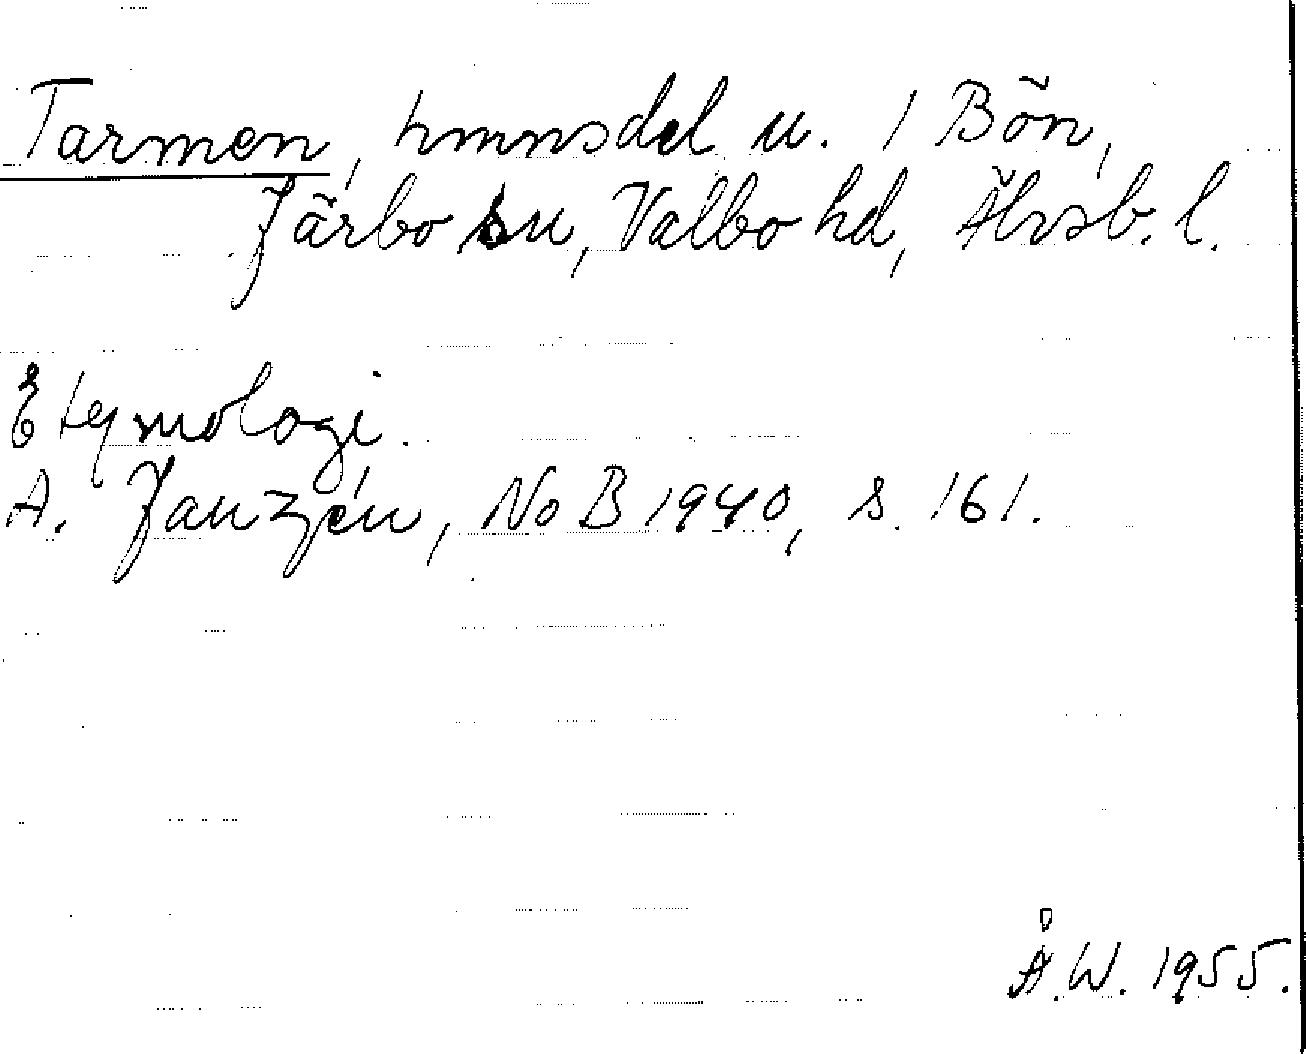 Tarmen, hmnsdel u. 1 Bön,
Järbo sn, Valbo hd, Älvsb. l.
Etymologi.
A. Janzén, NoB 1940, s. 161.
Å.W. 1955.